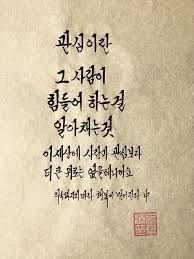 관심이란
그 사람이
힘들어 하는걸
알아채는것
이 세상에 사랑과 관심보다
더 큰 위로는 없을테니까요